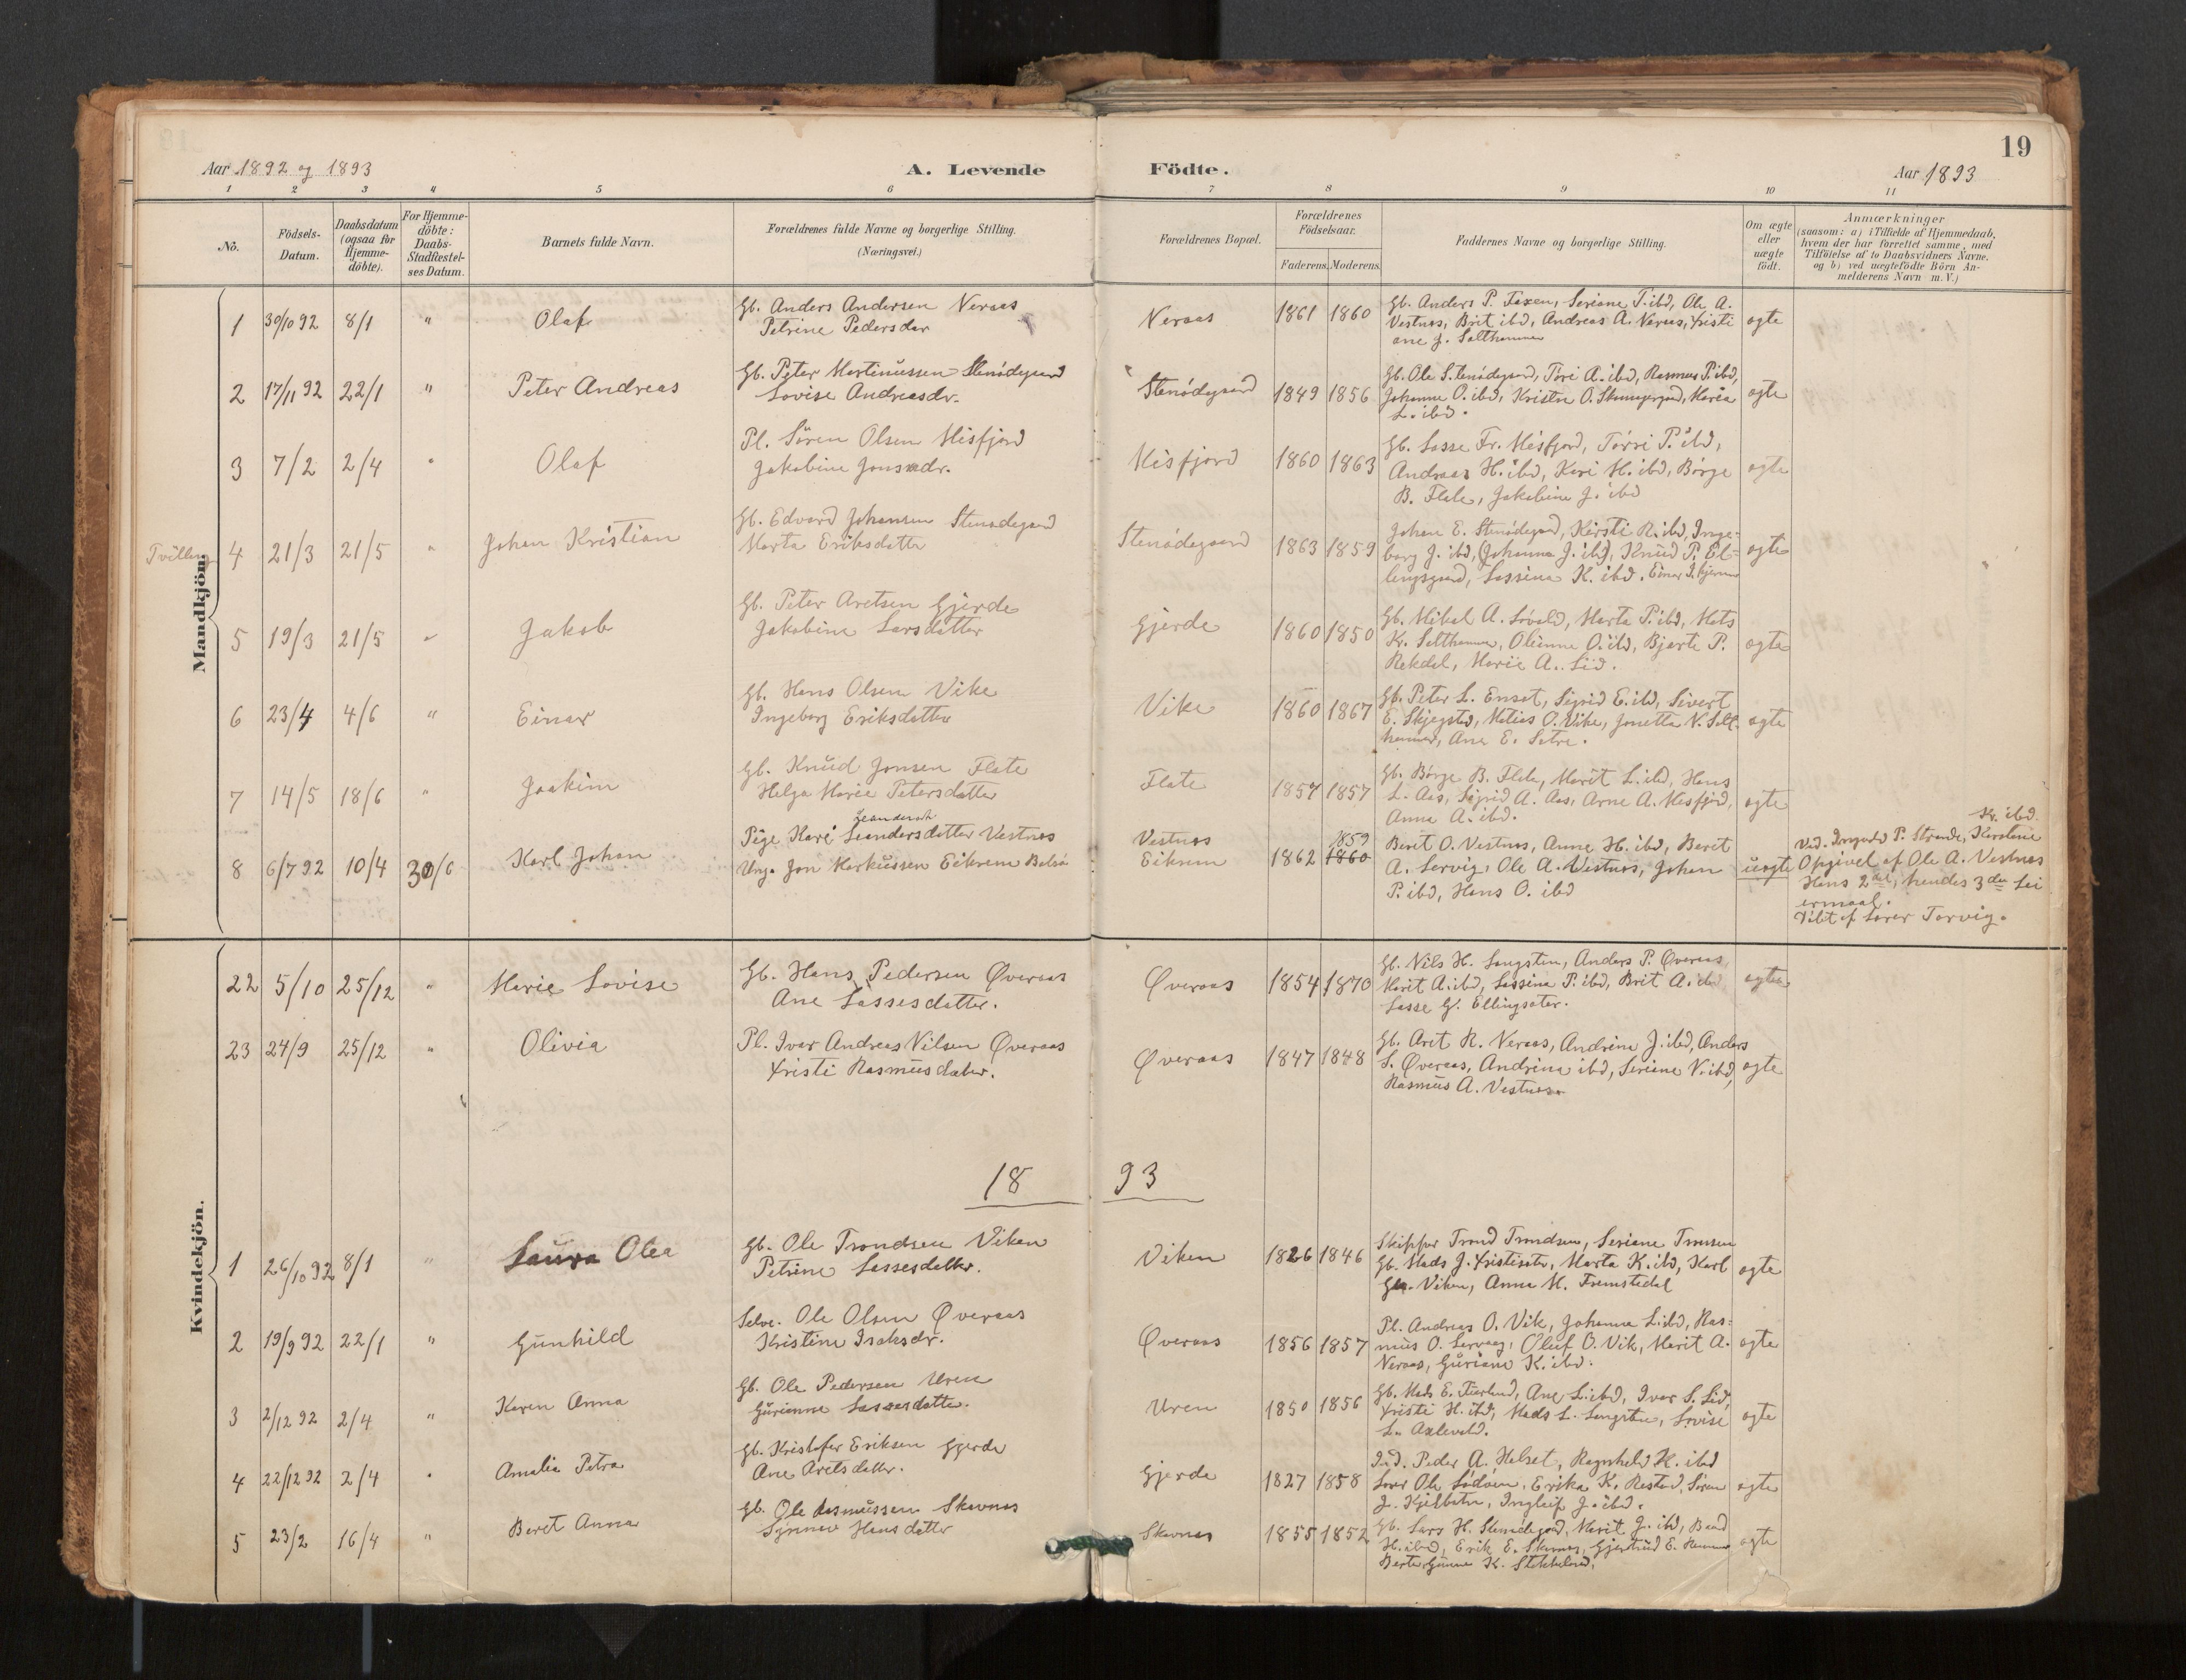 19
Aar 1892 og 1893
A. Levende Födte.
Aar 1893
1 2 3 4 5 6 7 8 9 10 11
No.
Födsels-Datum.
Daabsdatum (ogsaa for Hjemme-döbte).
For Hjemme-döbte: Daabs-Stadfæstel-ses Datum.
Barnets fulde Navn.
Forældrenes fulde Navne og borgerlige Stilling. (Næringsvei.)
Forældrenes Bopæl.
Forældrenes Födselsaar.
Faderens. Moderens.
Faddernes Navne og borgerlige Stilling.
Om ægte eller uægte födt.
Anmærkninger
(saasom: a) i Tilfælde af Hjemmedaab,
hvem der har forrettet samme, med
Tilföielse af to Daabsvidners Navne.
og b) ved uægtefödte Börn An-
melderens Navn m. V.)
Mandkjön.
1 30/10 92 8/1 " Olaf
Gb. Anders Andersen Neraas
Petrine Pedersdar
Neraas 1861 1860
Gb. Anders P. , Seriane P. ibd, Ole A.
Vestnes, Brit ibd, Andreas A. Neraas, Kristi
ane J. Salthammer
ægte
2 17/11 92 22/1 " Peter Andreas
Gb. Peter Martinussen Stenödegaard
Lovise Andreasdr.
Stenödegaard 1849 1856
Gb. Ole S. Stenödegaard, Töri A. ibd, Rasmus P. ibd,
Johanne O. ibd, Kristen O. , Maria
L. ibd.
ægte
3 7/2 2/4 " Olaf
Pl. Sören Olsen Misfjord
Jakobine Jonsdr.
Misfjord 1860 1863
Gb. Lasse Fr. Misfjord, P. ibd,
Andreas H. ibd, Kari M. ibd, Börge
B. Flate, Jakobine J. ibd
ægte
Tvilling 4 21/3 21/5 " Johan Kristian
Gb. Edvard Johansen Stenödegaard
Marta Eriksdatter
Stenödegaard 1863 1859
Johan E. Stenödegaard, Kirsti R. ibd, Inge-
borg J. ibd, (Johanna J. ibd), Knud P. El-
lingsgaard, Lassina K. ibd. Einar
ægte
5 19/3 21/5 " Jakob
Gb. Peter Aretsen Gjerde
Jakobine Larsdatter
Gjerde 1860 1850
Gb. Mikal A. , Marta P. ibd, Mats
Kr. Salthammer, Olianna O. ibd, Bjarte P.
Rekdal, Marie A. Lid.
ægte
6 23/4 4/6 " Einar
Gb. Hans Olsen Vike
Ingeborg Eriksdatter
Vike 1860 1867
Gb. Peter L. Enset, Sigrid E. ibd, Sivert
E. , Matias O. Vike, Jonetta N. Salt-
hammer, Ane E. Sætre.
ægte
7 14/5 18/6 " Joakim
Gb. Knud Jonsen Flate
Helga Marie Petersdatter
Flate 1857 1857
Gb. Börge B. Flate, Marit L. ibd, Hans
L. Aas, Sigrid A. Aas, Arne A. Misfjord,
Anna A. ibd.
ægte
8 6/7 92 10/4 30/6 Karl Johan
Pige Kari Leandersdatter Vestnes
Ung. Jon Markussen Eikrem Bolsö
Vestnes
Eikrem 1862 1859 1860
Berit O. Vestnes, Anne H. ibd, Berit
A. Servig, Ole A. Vestnes, Johan
P. ibd, Hans O. ibd
uægte
Kr. ibd.
Vid. P. Strande, Karoline
Opgivet af Ole A. Vestnes
Hans 2det, hendes 3die Lei
ermaal.
Döbt af Lærer Torvig.
Kvindekjön.
22 5/10 25/12 " Marie Lovise
Gb. Hans Pedersen Øveraas
Ane Lassesdatter.
Øveraas 1854 1870
Gb. Nils H. Langsten, Anders P. Øveraas,
Marit A. ibd, Lassina P. ibd, Brit A. ibd
Lasse G. Ellingsæter.
ægte
23 24/9 25/12 " Olivia
Pl. Ivar Andreas Nilsen Øveraas
Kristi Rasmusdatter.
Øveraas 1847 1848
Gb. Aret K. Neraas, Andrine J. ibd, Anders
S. Øveraas, Andrina ibd, Seriane N. ibd,
Rasmus A. Vestnes.
ægte
1893
1 26/10 92 8/1 " Laura Olea
Gb. Ole Trondsen Viken
Petrine Lassesdatter.
Viken 1826 1846
Skipper Trond Trondsen, Seriane Tronsen
Gb. Mads J. , Marta K. ibd, Karl
Viken, Anna M. Fremstedal
ægte
2 19/9 92 22/1 " Gunhild
Selve. Ole Olsen Øveraas
Kristine Isaksdr.
Øveraas 1856 1857
Pl. Andreas O. Vik, Johanne L. ibd, Ras-
mus O. , Oluf O. Vik, Marit A.
Neraas, Guriane K. ibd.
ægte
3 2/12 92 2/4 " Karen Anna
Gb. Ole Pedersen Uren
Gurianne Lassesdatter.
Uren 1850 1856
Gb. Mads E. , Ane L. ibd, Ivar S. Lid,
Kristi H. ibd, Mads L. Langsten, Lovise
L.
ægte
4 22/12 92 2/4 " Amalia Petra
Gb. Kristofer Eriksen Gjerde
Ane Aretsdatter.
Gjerde 1827 1858
Ind. Peder A. Helset, Ragnhild K. ibd
Lærer Ole , Erika K. Restad, Sören
J. , Ingleif J. ibd.
ægte
5 23/2 16/4 " Beret Anna
Gb. Ole Rasmussen Skavnes
Synneve Hansdatter
Skavnes 1855 1852
Gb. Lars H. Stenödegaard, Marit J. ibd,
H. ibd, Erik E. Skavnes, Gjertrud E.
K.
ægte